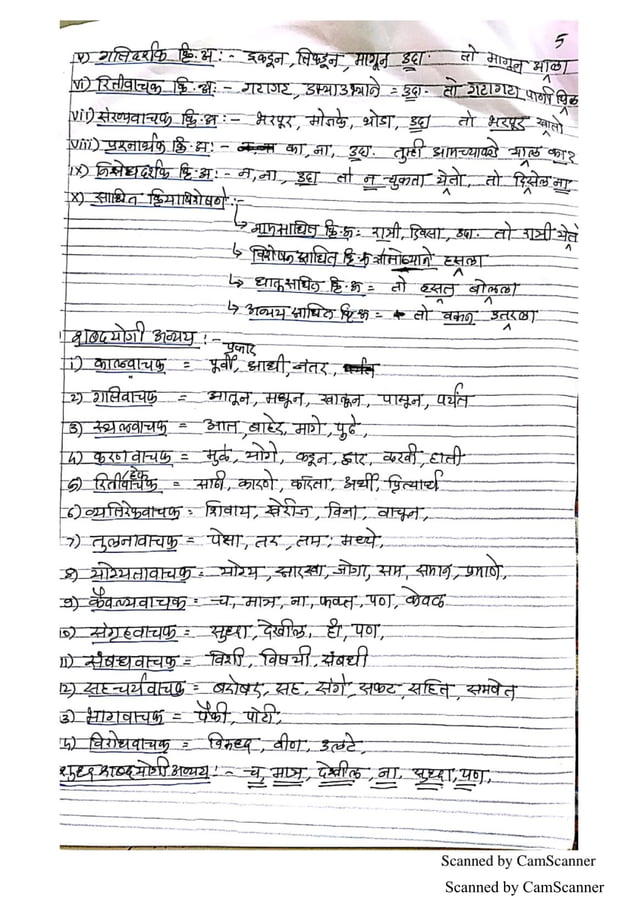 5
v) गतिदर्शक क्रि.अ:- इकडून, तिकडून, मागून उदा. तो मागून आला
vi) रितीवाचक क्रि.अ:- गटागट, उभ्याउभ्याने = उदा. तो गटागटा पाणी पितो
vii) संख्यावाचक क्रि.अ:- भरपूर, मोजके, थोडा, उदा तो भरपूर खातो
viii) प्रश्नार्थक क्रि.अ:- का, ना, उदा. तुम्ही आमच्याकडे याल का?
ix) निषेधदर्शक क्रि.अ:- न, ना, उदा तो न चुकता येतो, तो दिसेल ना
x) साधित क्रियाविशेषणे:-
↳ नामसाधित क्रि.अ: रात्री, दिवसा, उदा. तो रात्री येतो
↳ विशेषणसाधित क्रि.अ = तो मोठ्याने हसला
↳ धातुसाधित क्रि.अ = तो हसत बोलला
↳ अव्ययसाधित क्रि.अ = तो वरून उतरला
शब्दयोगी अव्यय:- प्रकार
1) काळवाचक = पूर्वी, आधी, नंतर, पर्यंत
2) गतिवाचक = आतून, मधून, खालून, पासून, पर्यंत
3) स्थलवाचक = आत, बाहेर, मागे, पुढे,
4) करणवाचक = मुळे, योगे, कडून, द्वारा, करवी, हाती
5) हेतुवाचक = साठी, कारणे, करिता, अर्थी, प्रित्यार्थ
6) व्यतिरेकवाचक = शिवाय, खेरीज, विना, वाचून,
7) तुलनावाचक = पेक्षा, तर, तम, मध्ये,
8) योग्यतावाचक = योग्य, सारखा, जोगा, सम, समान, प्रमाणे,
9) कैवल्यवाचक = च, मात्र, ना, फक्त, पण, केवळ
10) संग्रहवाचक = सुध्दा, देखील, ही, पण,
11) संबंधवाचक = विशी, विषयी, संबंधी
12) सहचर्यवाचक = बरोबर, सह, संगे, सकट, सहित, समवेत
3) भागवाचक = पैकी, पोटी,
4) विरोधवाचक = विरुध्द, वीण, उलटे,
शुध्द शब्दयोगी अव्यय:- च, मात्र, देखील, ना, सुध्दा, पण,
Scanned by CamScanner
Scanned by CamScanner